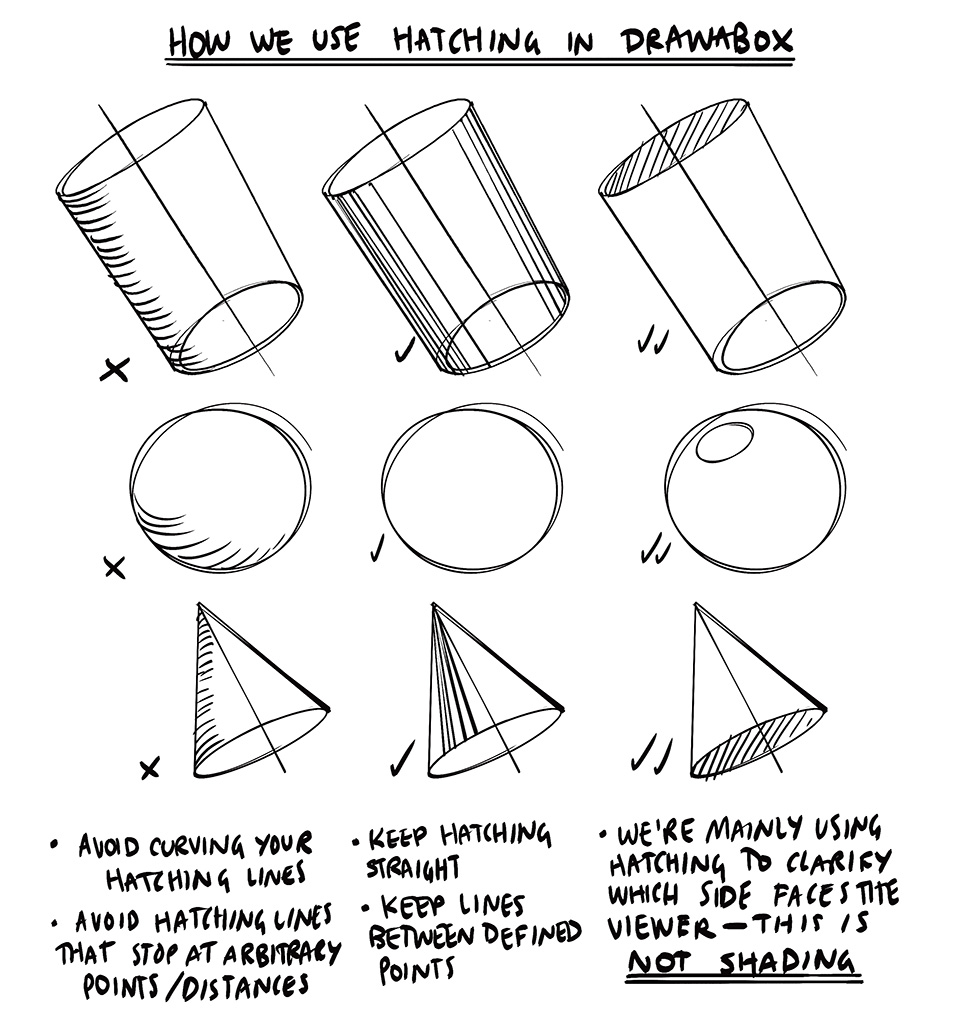 HOW WE USE HATCHING IN DRAWABOX
• AVOID CURVING YOUR
HATCHING LINES
• AVOID HATCHING LINES
THAT STOP AT ARBITRARY
POINTS/DISTANCES
• KEEP HATCHING
STRAIGHT
• KEEP LINES
BETWEEN DEFINED
POINTS
• WE'RE MAINLY USING
HATCHING TO CLARIFY
WHICH SIDE FACES THE
VIEWER — THIS IS
NOT SHADING